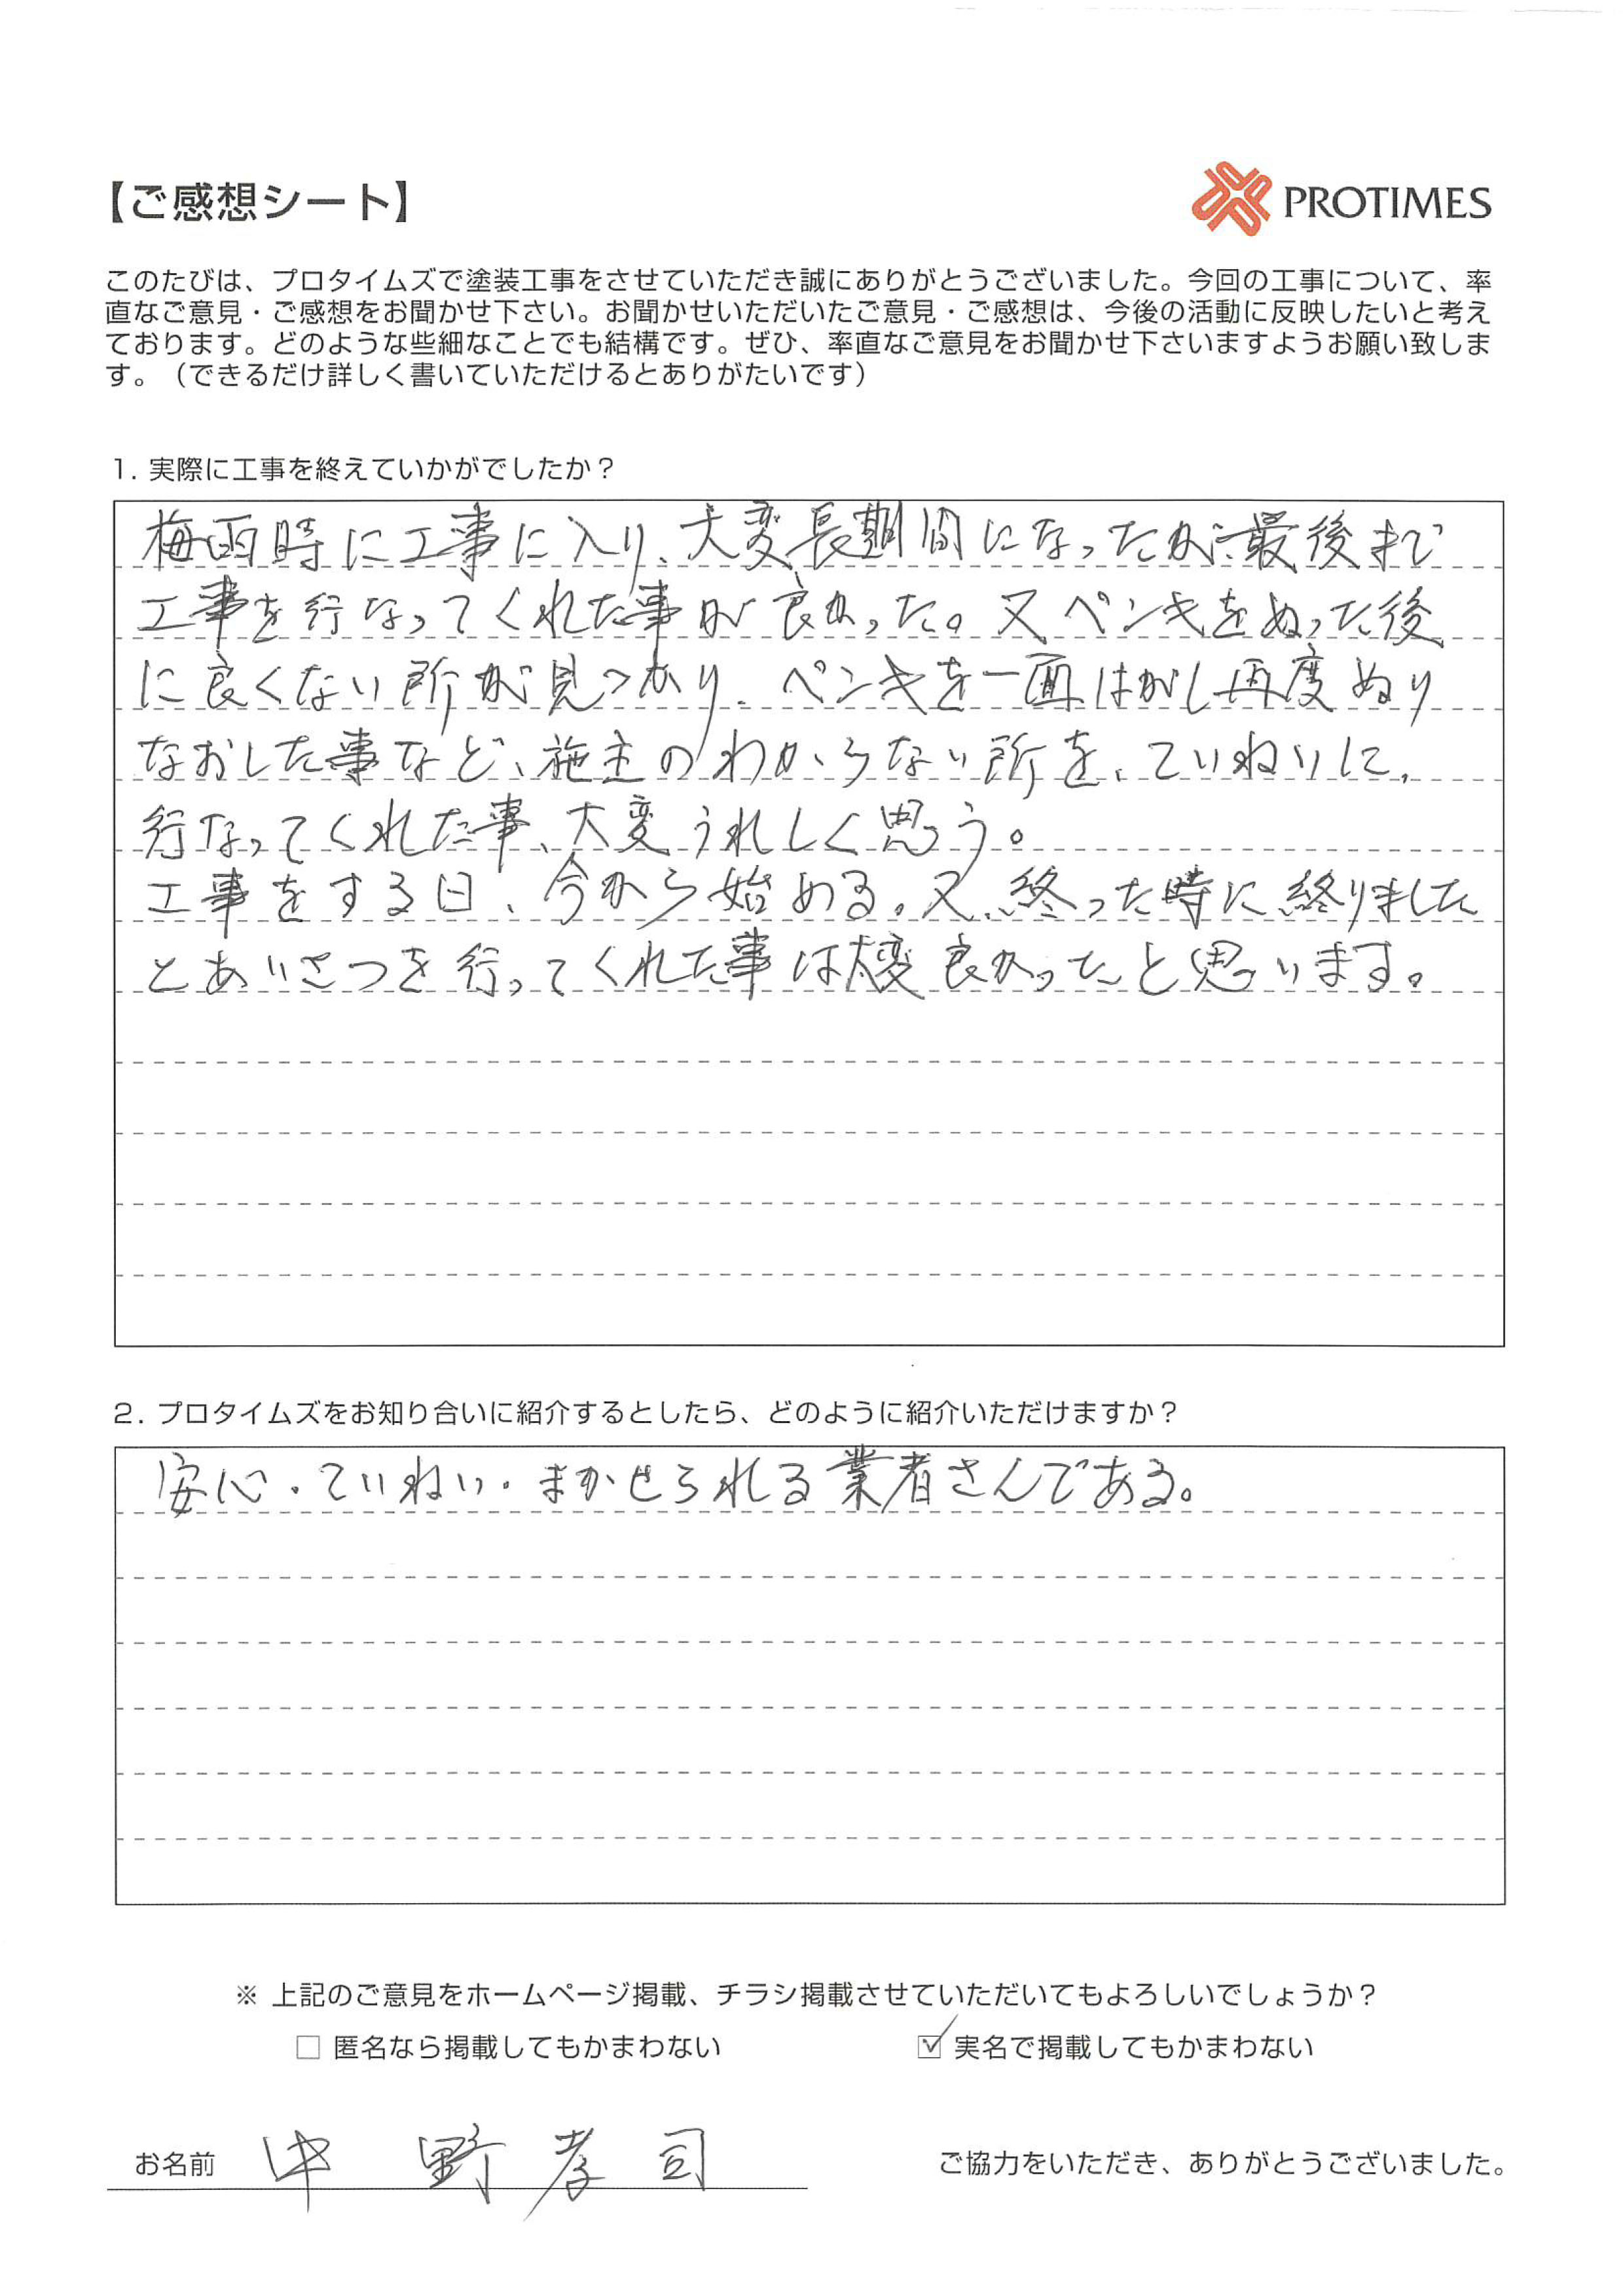 【ご感想シート】
PROTIMES
このたびは、プロタイムズで塗装工事をさせていただき誠にありがとうございました。今回の工事について、率
直なご意見・ご感想をお聞かせ下さい。お聞かせいただいたご意見・ご感想は、今後の活動に反映したいと考え
ております。どのような些細なことでも結構です。ぜひ、率直なご意見をお聞かせ下さいますようお願い致しま
す。（できるだけ詳しく書いていただけるとありがたいです）
1. 実際に工事を終えていかがでしたか？
梅雨時に工事に入り、大変長期間になったが、最後まで
工事を行なってくれた事が良かった。又ペンキをぬった後
に良くない所が見つかり、ペンキを一面はがし再度ぬり
なおした事など、施主のわからない所を、ていねいに、
行なってくれた事、大変うれしく思う。
工事をする日、今から始める。又、終った時に終りました
とあいさつを行ってくれた事は大変良かったと思います。
2. プロタイムズをお知り合いに紹介するとしたら、どのように紹介いただけますか？
安心・ていねい・まかせられる業者さんである。
※ 上記のご意見をホームページ掲載、チラシ掲載させていただいてもよろしいでしょうか？
□ 匿名なら掲載してもかまわない ☑ 実名で掲載してもかまわない
お名前 中野孝司 ご協力をいただき、ありがとうございました。